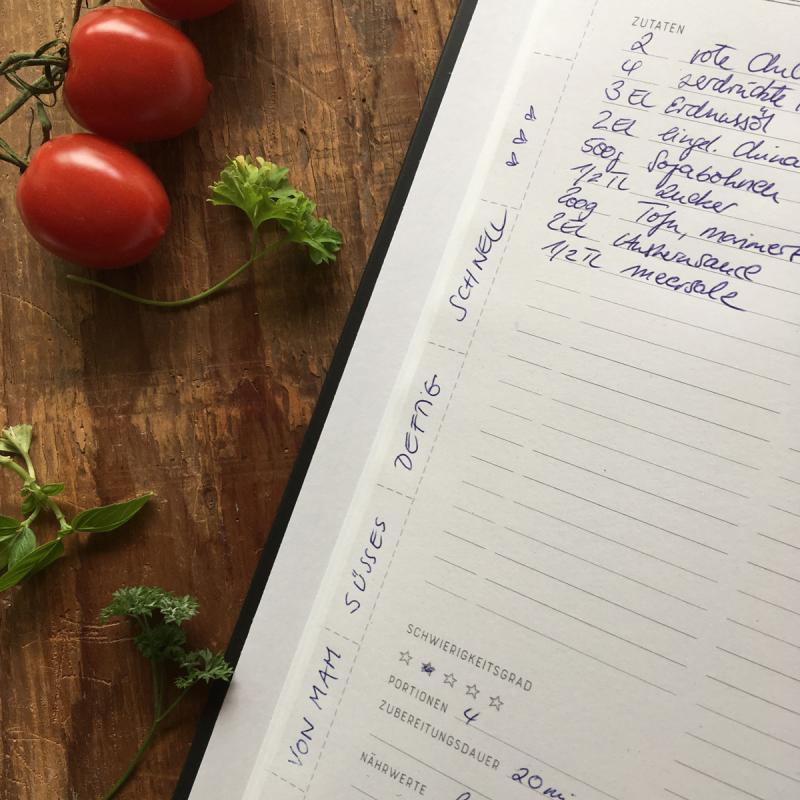 ZUTATEN
2 rote
4 zerdrückte
3 EL Erdnussöl
2EL eingel. China
500g Sojabohnen
1/2 TL Zucker
200g Tofu, mariniert
2EL Austernsauce
1/2 TL meersalz
SCHNELL
DEFTIG
SÜSSES
VON MAM
SCHWIERIGKEITSGRAD
PORTIONEN 4
ZUBEREITUNGSDAUER 20 mi
NÄHRWERTE